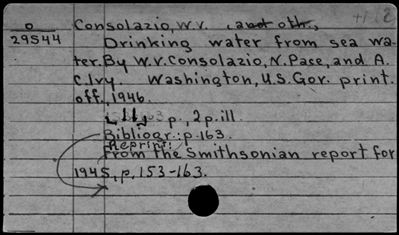 o
29544
Consolazio, W.V. and oth.,
Drinking water from sea wa-
ter. By W.V. Consolazio, N. Pace, and A.
C. Ivy. Washington, U.S. Gov. print.
off., 1946.
p., 2 p. ill.
Bibliogr.: p. 163.
Reprint:
From the Smithsonian report for
1945, p. 153-163.